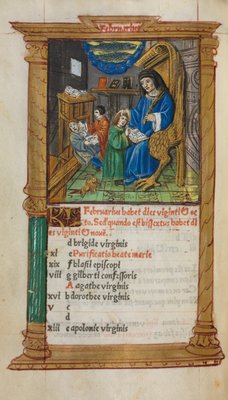 Februarius
KL Februarius habet dies viginti o
cto. Sed quando est bissextus habet di
es viginti et noue.
d brigide virginis
xi e Purificatio beate marie
xix f blasii episcopi
viii g gilberti confessoris
A agathe virginis
xvi b dorothee virginis
v c
d
xiii e apolonie virginis